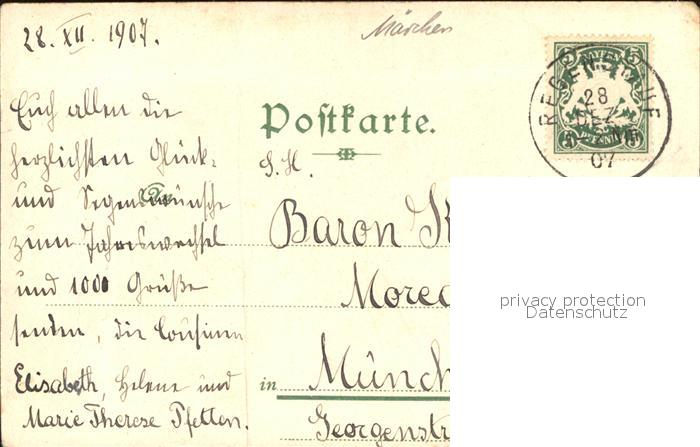 28. XII. 1907.
Märchen
Euch allen die
herzlichsten Glück-
und Segenswünsche
zum Jahreswechsel
und 1000 Grüße
senden, die Cousinen
Elisabeth, Helene und
Marie Therese Pfetten.
Postkarte.
S. H.
Baron
Mün
in Münch
Georgenstr
5 BAYERN 5
REGENSTAUF
28
DEZ
07
privacy protection
Datenschutz